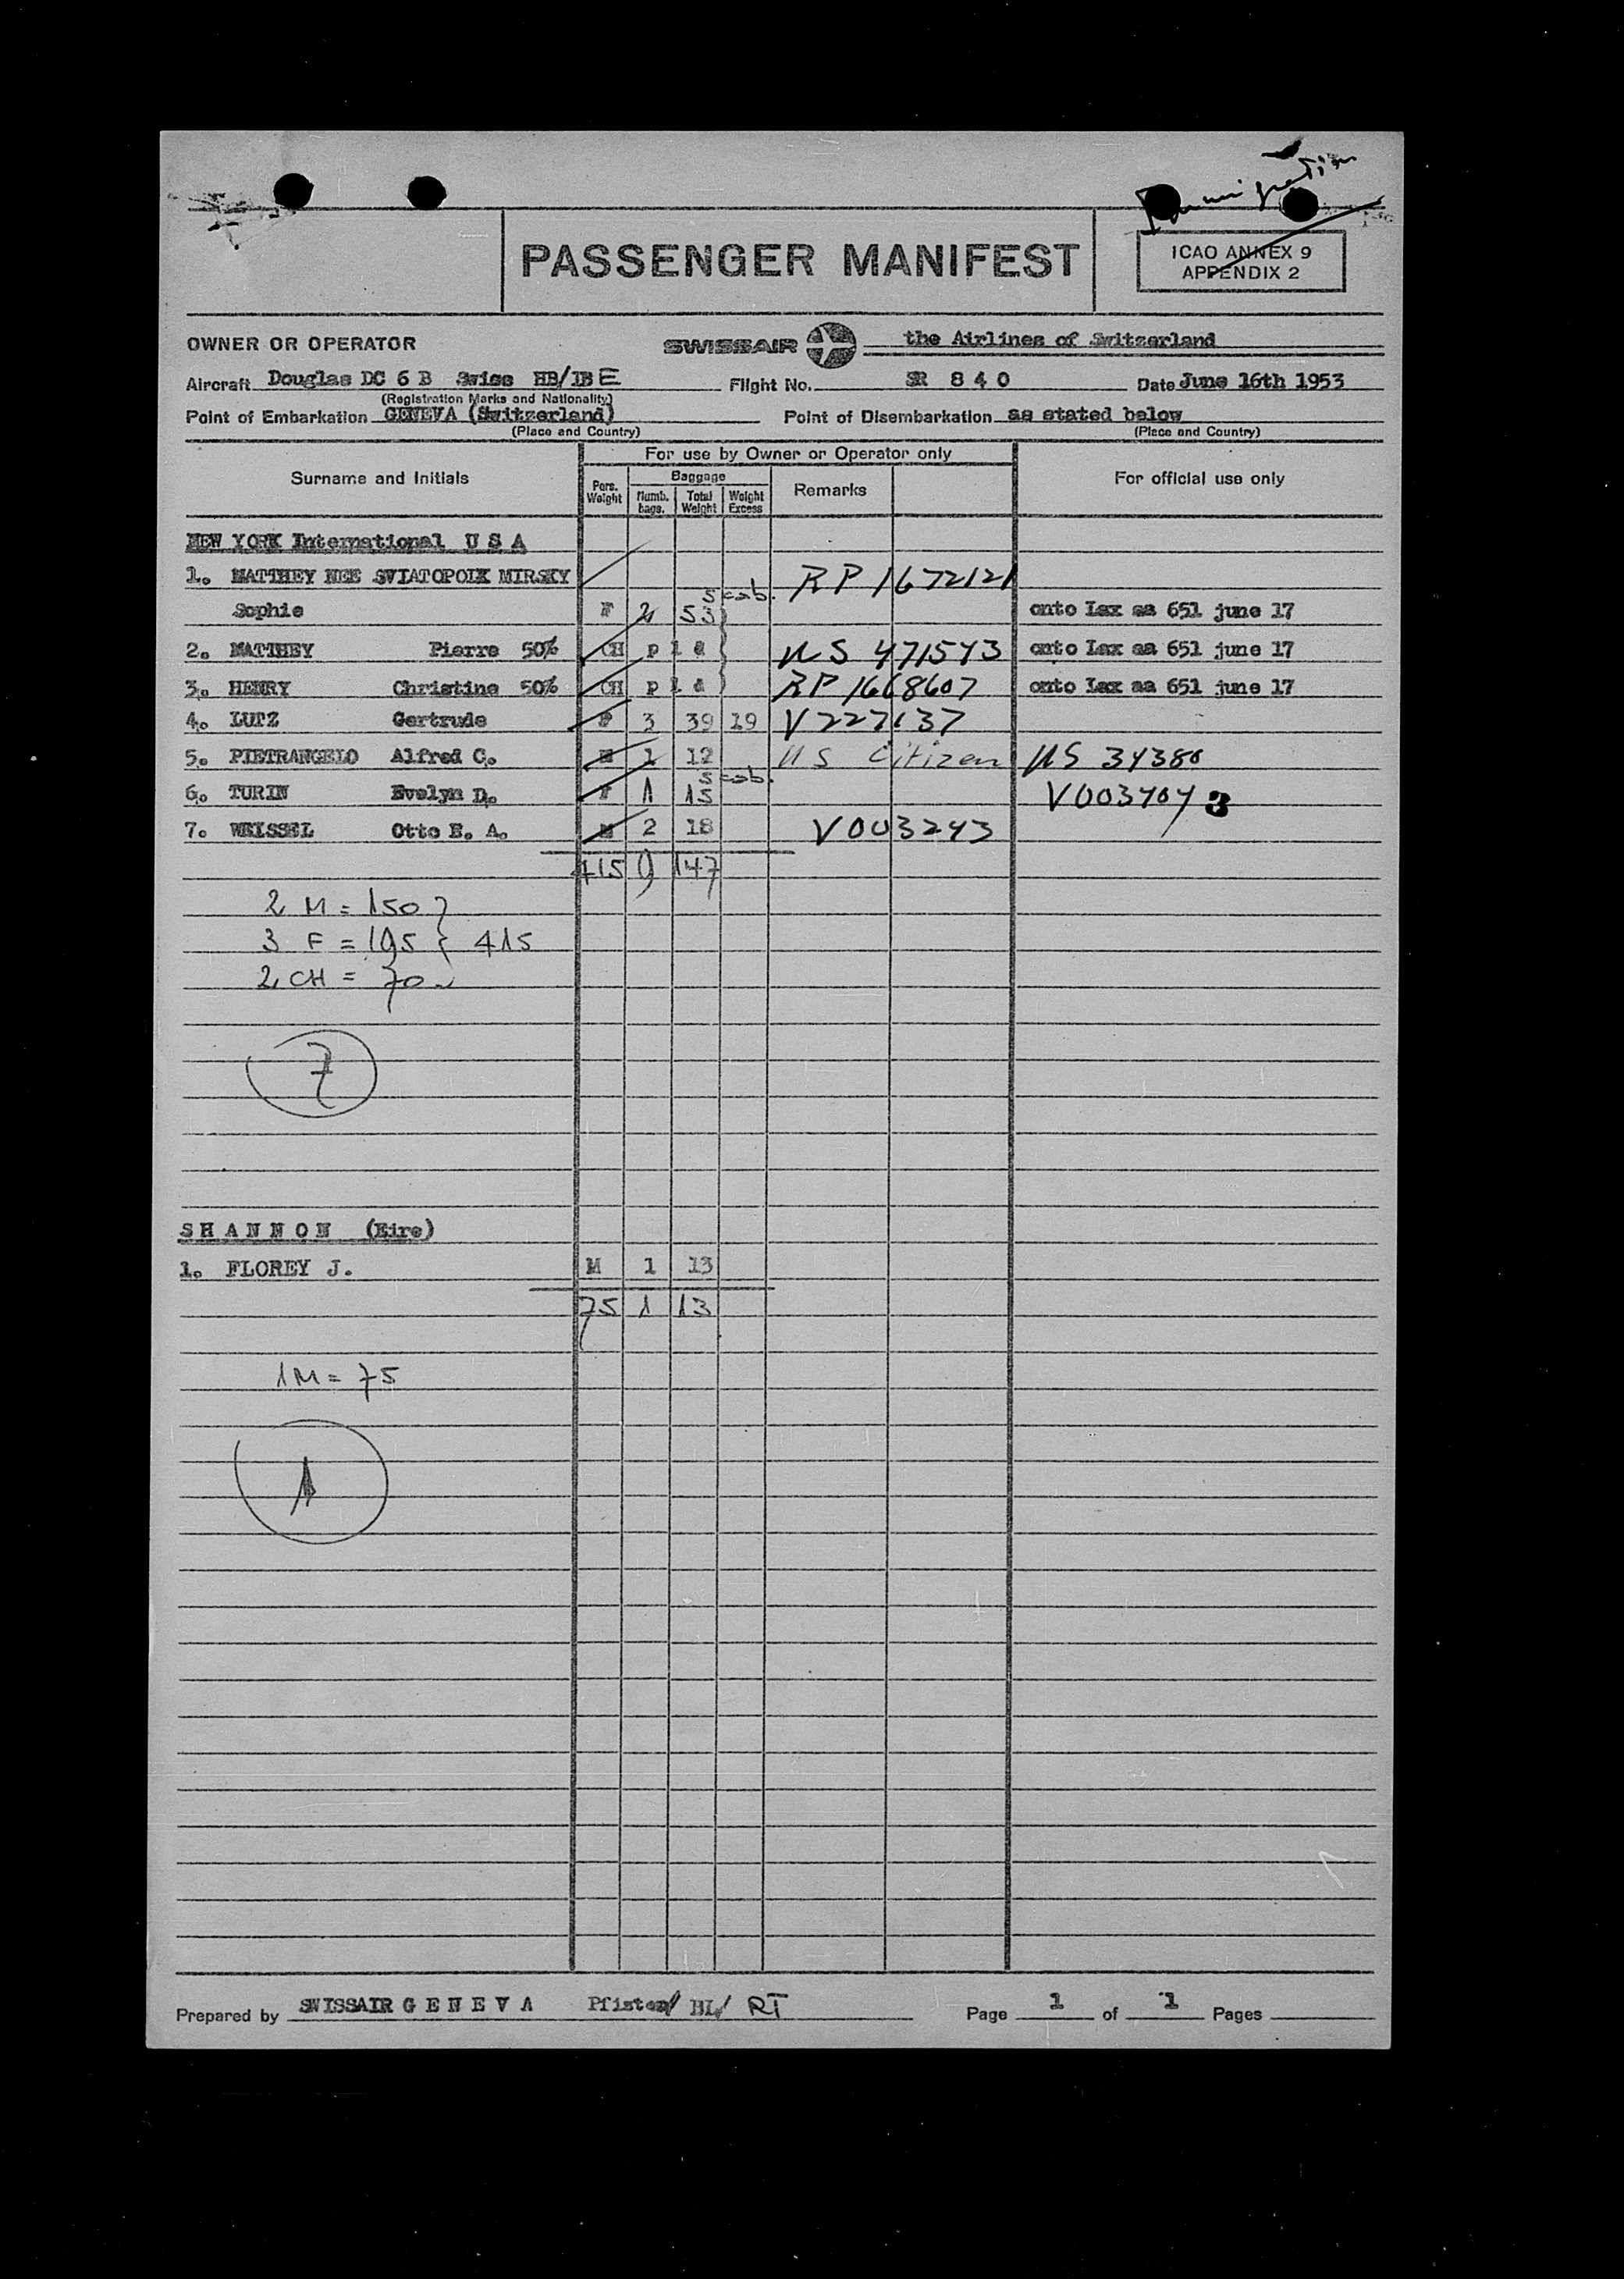 Immigration
PASSENGER MANIFEST
ICAO ANNEX 9
APPENDIX 2
OWNER OR OPERATOR SWISSAIR the Airlines of Switzerland
Aircraft Douglas DC 6 B Swiss HB/IBE Flight No. SR 840 Date June 16th 1953
(Registration Marks and Nationality)
Point of Embarkation GENEVA (Switzerland) Point of Disembarkation as stated below
(Place and Country) (Place and Country)
For use by Owner or Operator only
Surname and Initials Pers. Weight Baggage Remarks For official use only
Numb. bags. Total Weight Weight Excess
NEW YORK International U S A
1. MATTHEY NEE SVIATOPOLK MIRSKY RP 1672121
5 cab.
Sophie F 2 53 onto Lax aa 651 june 17
2. MATTHEY Pierre 50% CH p l a US 471543 onto Lax aa 651 june 17
3. HENRY Christine 50% CH p l a RP 1668607 onto Lax aa 651 june 17
4. LUTZ Gertrude F 3 39 19 V227137
5. PIETRANGELO Alfred C. M 1 12 US Citizen US 34380
5 cab.
6. TURIN Evelyn D. F 1 15 V003704 3
7. WEISSEL Otto E. A. M 2 18 V003243
415 9 147
2 M = 150
3 F = 195 } 415
2 CH = 70
7
SHANNON (Eire)
1. FLOREY J. M 1 13
75 1 13
1M = 75
1
Prepared by SWISSAIR GENEVA Pfister/ BL/ RT Page 1 of 1 Pages